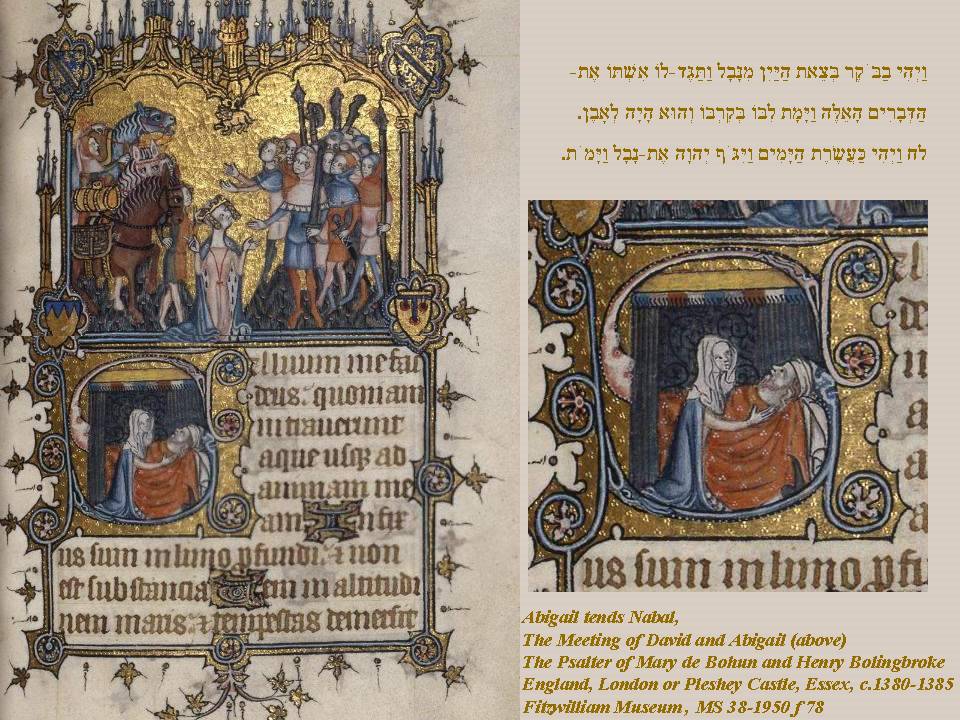 Saluum me fac
deus: quoniam
intrauerunt
aque usq; ad
animam me
am Infix
us sum in limo pfundi: & non
est substancia Veni in altitudi
nem maris: & tempestas demersit
וַיְהִי בַבֹּקֶר בְּצֵאת הַיַּיִן מִנָּבָל וַתַּגֶּד-לוֹ אִשְׁתּוֹ אֶת-
הַדְּבָרִים הָאֵלֶּה וַיָּמָת לִבּוֹ בְּקִרְבּוֹ וְהוּא הָיָה לְאָבֶן.
לח וַיְהִי כַּעֲשֶׂרֶת הַיָּמִים וַיִּגֹּף יְהוָה אֶת-נָבָל וַיָּמֹת.
us sum in limo pfu
Abigail tends Nabal,
The Meeting of David and Abigail (above)
The Psalter of Mary de Bohun and Henry Bolingbroke
England, London or Pleshey Castle, Essex, c.1380-1385
Fitzwilliam Museum , MS 38-1950 f 78